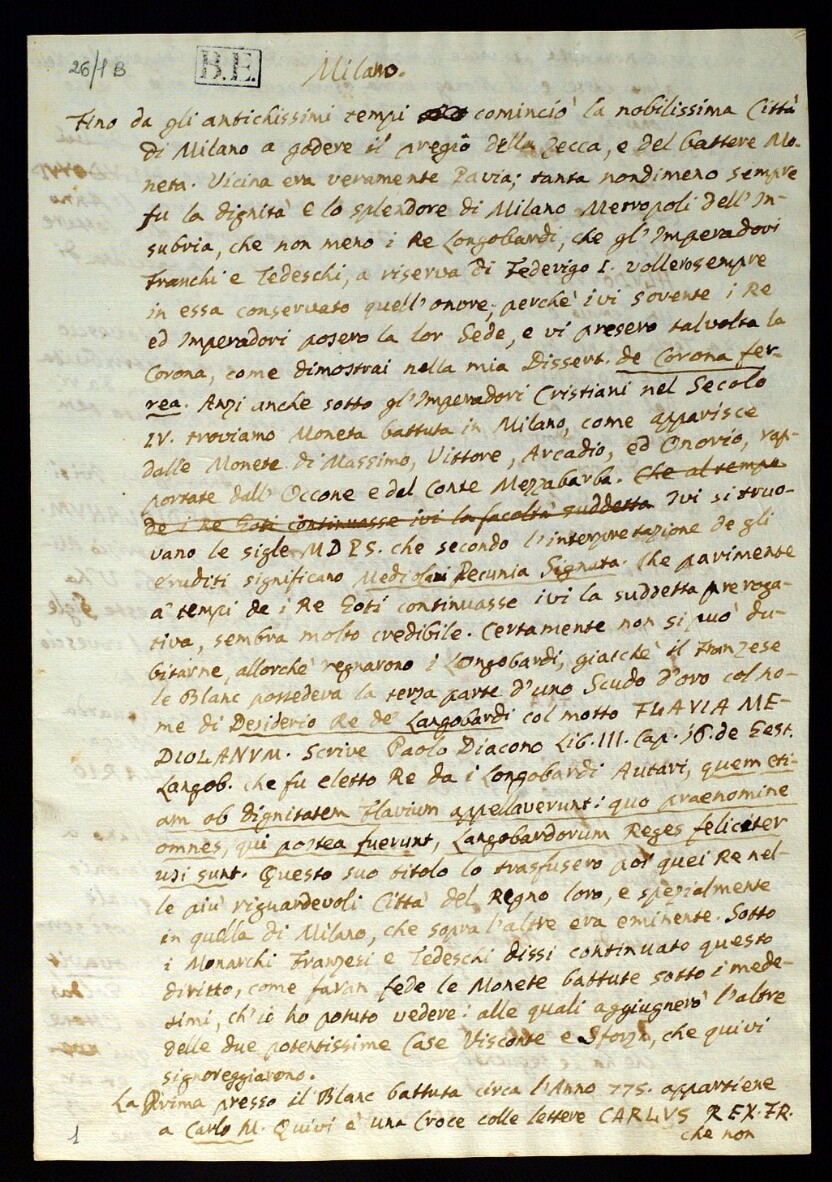 26/1 B
B.E.
Milano.
Fino da gli antichissimi tempi cominciò la nobilissima Città
di Milano a godere il pregio della Zecca, e del battere Mo-
neta. Vicina era veramente Pavia; tanta nondimeno sempre
fu la dignità e lo splendore di Milano Metropoli dell'In-
subria, che non meno i Re Longobardi, che gl'Imperadori
Franchi e Tedeschi, a riserva di Federigo I. vollero sempre
in essa conservato quell'onore, perchè ivi sovente i Re
ed Imperadori posero la lor Sede, e vi presero talvolta la
Corona, come dimostrai nella mia Dissert. de Corona fer-
rea. Anzi anche sotto gl'Imperadori Cristiani nel Secolo
IV. troviamo Moneta battuta in Milano, come apparisce
dalle Monete di Massimo, Vittore, Arcadio, ed Onorio, rap-
portate dall'Occone e dal Conte Mezzabarba. Che al tempo
de i Re Goti continuasse ivi la facoltà suddetta Ivi si truo-
vano le sigle M D P S. che secondo l'interpretazione de gli
eruditi significano Mediolani Pecunia Signata. Che parimente
a' tempi de i Re Goti continuasse ivi la suddetta preroga-
tiva, sembra molto credibile. Certamente non si può du-
bitarne, allorchè regnarono i Longobardi, giacchè il Franzese
le Blanc possedeva la terza parte d'uno Scudo d'oro col no-
me di Desiderio Re de' Langobardi col motto FLAVIA ME-
DIOLANVM. Scrive Paolo Diacono Lib. III. Cap. 16. de Gest.
Langob. che fu eletto Re da i Longobardi Autari, quem eti-
am ob dignitatem Flavium appellaverunt: quo praenomine
omnes, qui postea fuerunt, Langobardorum Reges feliciter
usi sunt. Questo suo titolo lo trasfusero poi quei Re nel-
le più riguardevoli Città del Regno loro, e spezialmente
in quella di Milano, che sopra l'altre era eminente. Sotto
i Monarchi Franzesi e Tedeschi dissi continuato questo
diritto, come faran fede le Monete battute sotto i mede-
simi, ch'io ho potuto vedere: alle quali aggiugnerò l'altre
delle due potentissime Case Visconte e Sforza, che quivi
signoreggiarono.
La Prima presso il Blanc battuta circa l'Anno 775. appartiene
a Carlo M. Quivi è una Croce colle lettere CARLVS REX. FR.
che non
1